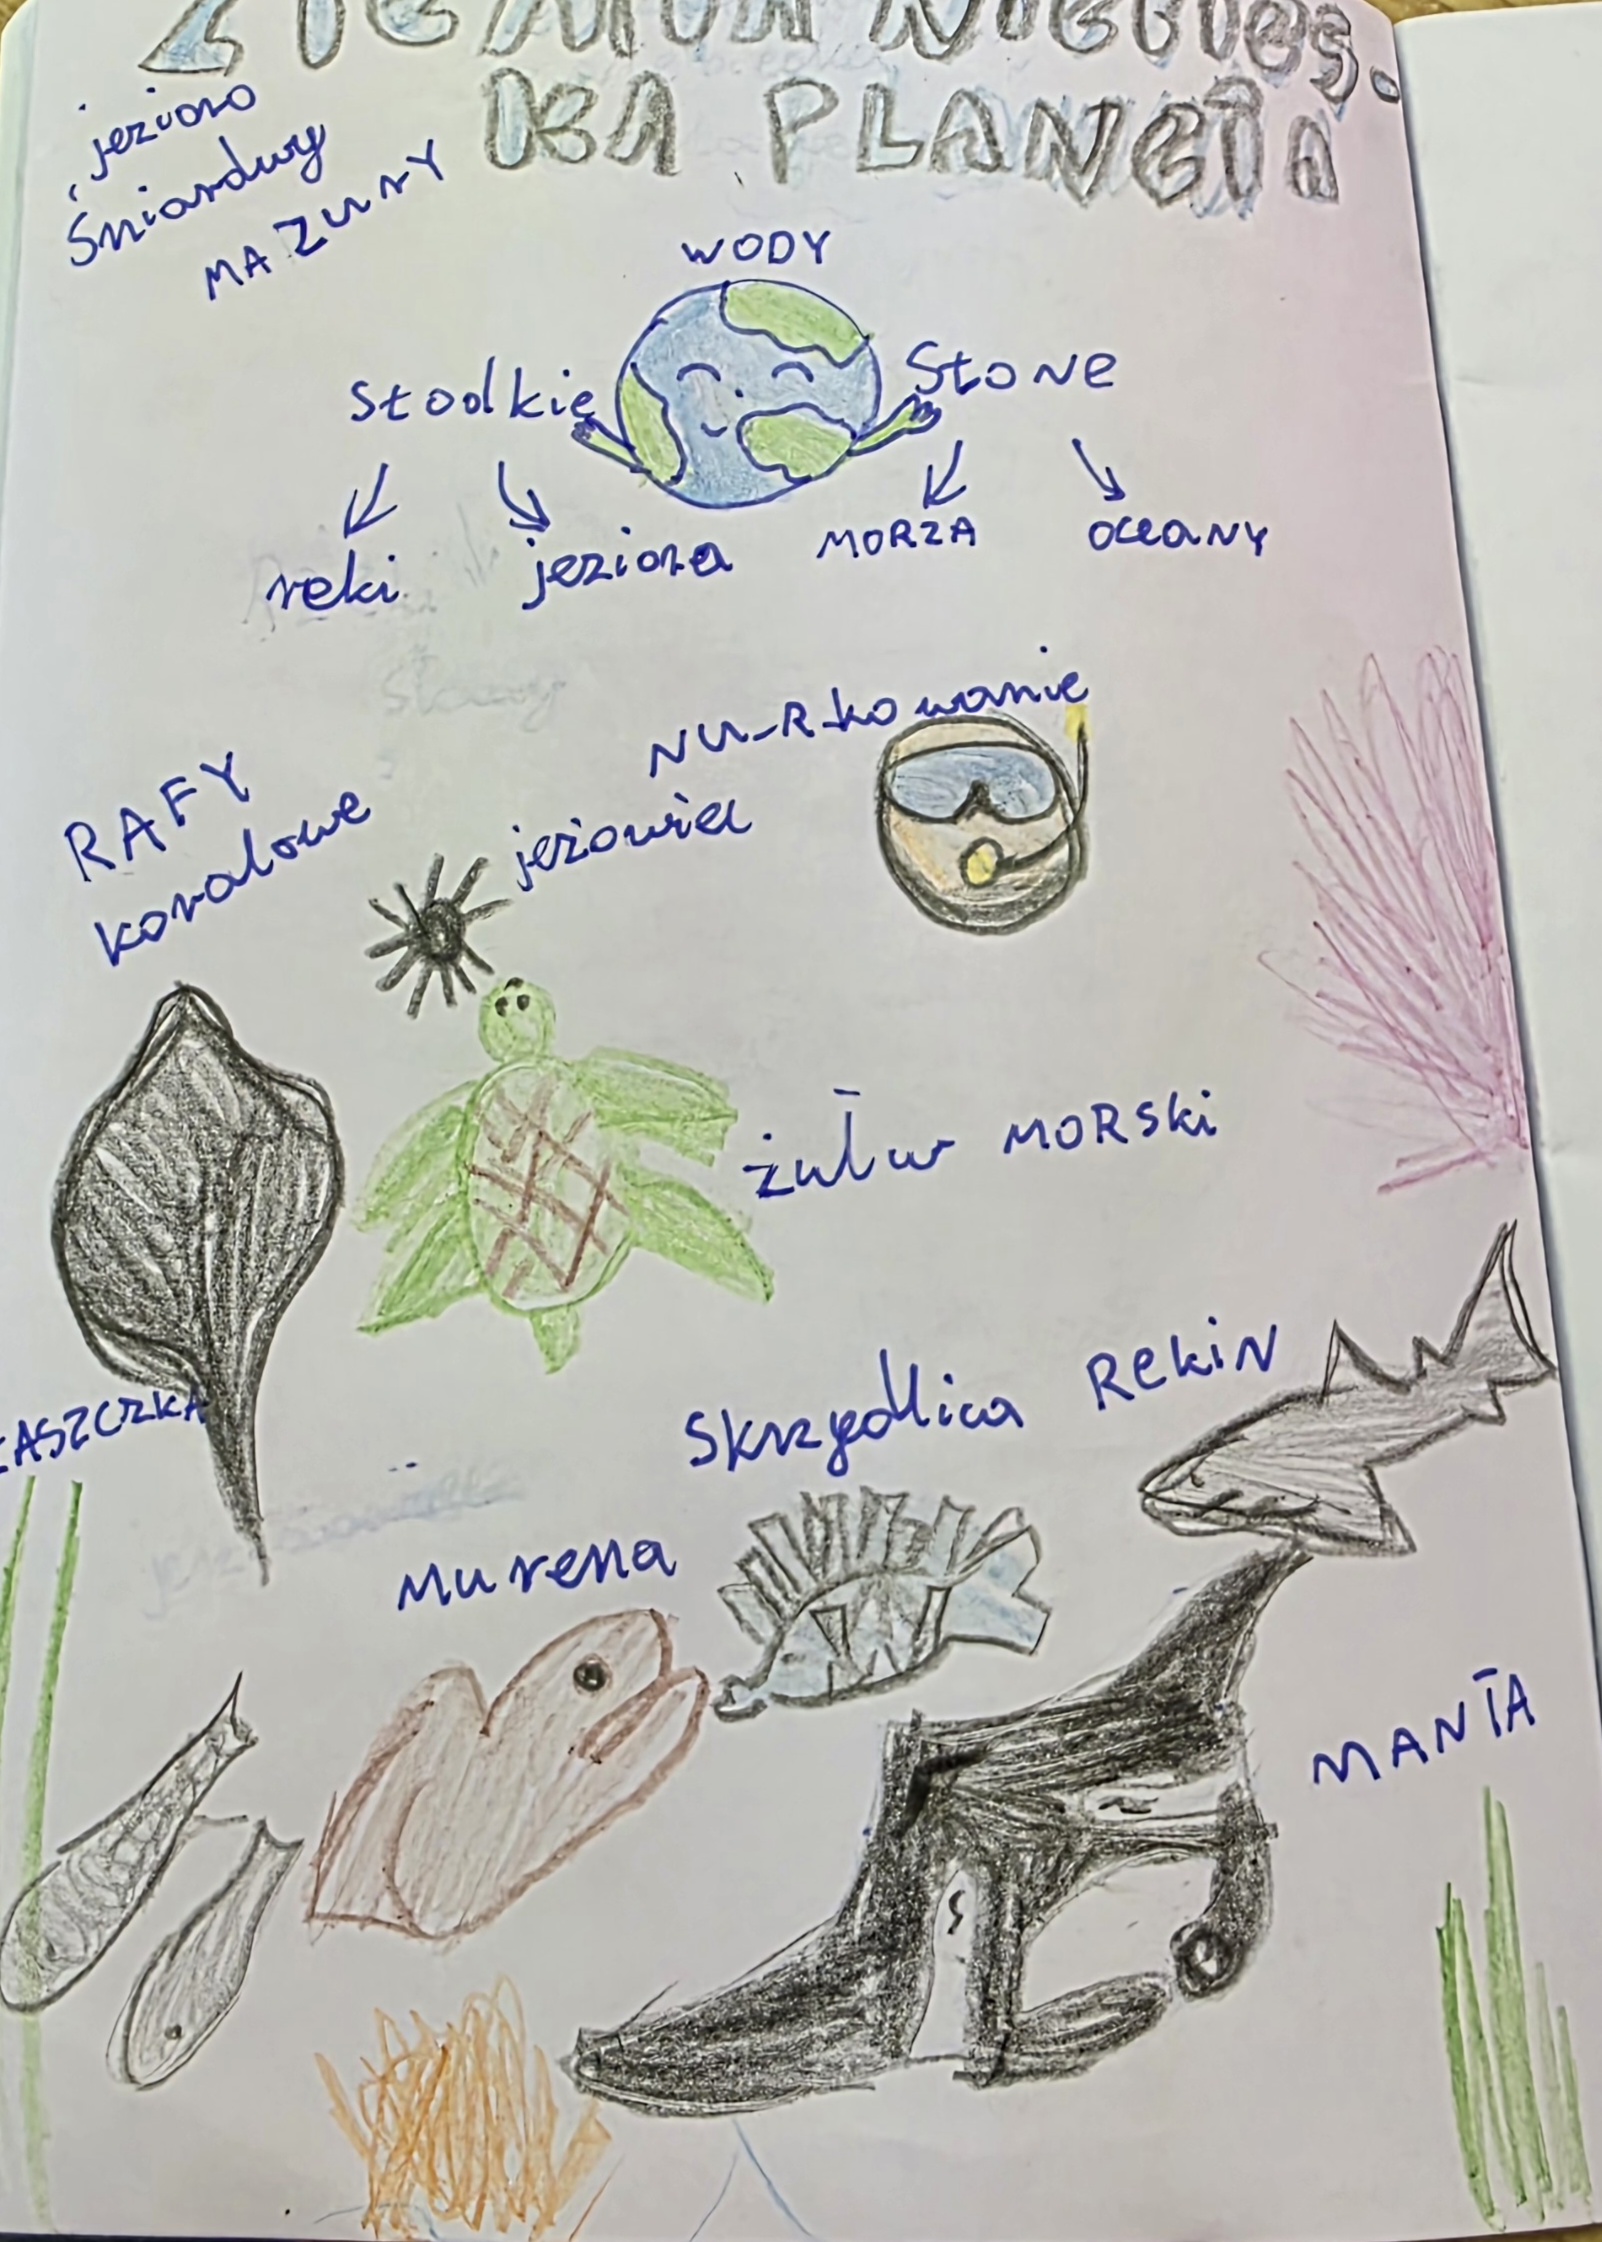 ZIEMIA NIEBIES-
KA PLANETA
jezioro
Śniardwy
MAZURY
WODY
słodkie
Słone
reki
jeziora
MORZA
oceany
NURkowanie
RAFY
koralowe
jeżowiec
żułw MORSki
PŁASZCZKA
Skrzydlica
Rekin
Murena
MANTA